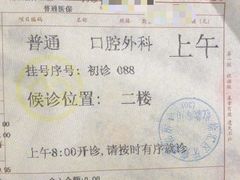 普通医保
普通 口腔外科 上午
挂号序号: 初诊 088
候诊位置: 二楼
上午8:00开诊,请按时有序就诊